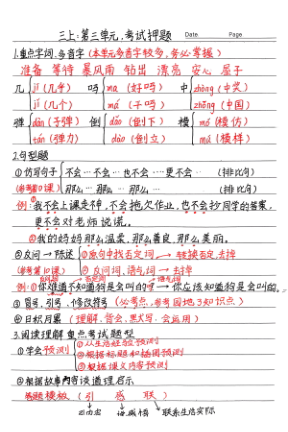 三上:第三单元,考试押题 Date Page
1.重点字词、多音字(本单元多音字较多,务必掌握)
准备 等待 暴风雨 钻出 漂亮 安心 屋子
几 jī(几乎) 吗 ma(好吗) 中 zhòng(中奖)
jǐ(几个) má(干吗) zhōng(中国)
弹 dàn(子弹) 倒 dǎo(倒下) 模 mó(模仿)
tán(弹力) dào(倒立) mú(模样)
2.句型题
①仿写句子 不会…不会…也不会…更不会… (排比句)
那么…那么…那么… (排比句)
例:①我不会上课走神,不会拖欠作业,也不会抄同学的答案,
更不会对老师说谎。
②我的妈妈那么温柔,那么善良,那么美丽。
②反问→陈述 ①原句中找否定词,→转换否定,去掉
②反问词、语气词→去掉
例:你难道不知道狗是会叫的吗?→你应该知道狗是会叫的。
③冒号,引号,修改符号(必考点,参考园地3知识点)
④日积月累(理解、背会、默写、会运用)
3.阅读理解重点考试题型
①学会预测 ①从生活经验预测
②根据标题和插图预测
③根据课文内容预测
②根据故事内容谈道理启示
答题模板(引 感 联)
联系生活实际